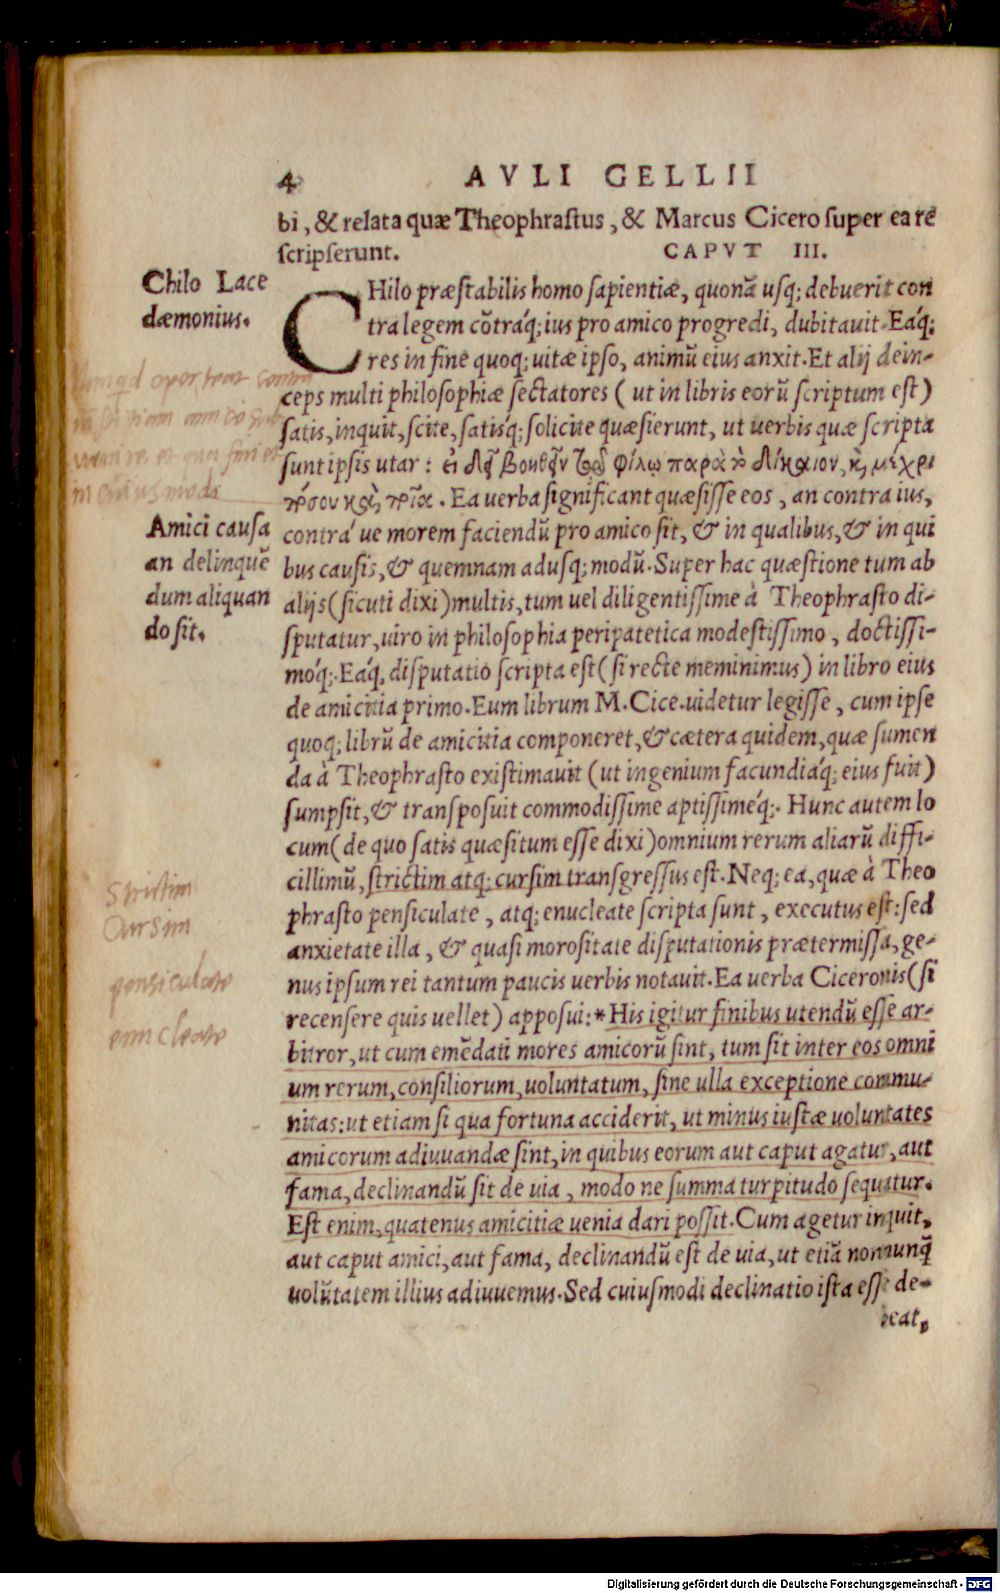 4 AVLI GELLII
bi, & relata quæ Theophraſtus, & Marcus Cicero ſuper ea rẽ
ſcripſerunt. CAPVT III.
Chilo Lace
dæmonius.
CHilo præſtabilis homo ſapientiæ, quonã uſq; debuerit con
tra legem cõtráq; ius pro amico progredi, dubitauit. Eáq;
res in fine quoq; uitæ ipſo, animũ eius anxit. Et alij dein-
ceps multi philoſophiæ ſectatores (ut in libris eorũ ſcriptum eſt)
ſatis, inquit, ſcite, ſatisq́; ſolicite quæſierunt, ut uerbis quæ ſcripta
ſunt ipſis utar: εἰ δεῖ βοηθεῖν τῷ φίλῳ παρὰ τὸ δίκαιον, καὶ μέχρι
πόσου καὶ ποῖα. Ea uerba ſignificant quæſiſſe eos, an contra ius,
Amici cauſa
an delinquẽ
dum aliquan
do ſit.
contrá ue morem faciendũ pro amico ſit, & in qualibus, & in qui
bus cauſis, & quemnam aduſq; modũ. Super hac quæſtione tum ab
alijs (ſicuti dixi) multis, tum uel diligentiſſime à Theophraſto di-
ſputatur, uiro in philoſophia peripatetica modeſtiſſimo, doctiſſi-
moq́;. Eáq; diſputatio ſcripta eſt (ſi recte meminimus) in libro eius
de amicitia primo. Eum librum M. Cice. uidetur legiſſe, cum ipſe
quoq; librũ de amicitia componeret, & cætera quidem, quæ ſumen
da à Theophraſto exiſtimauit (ut ingenium facundiáq; eius fuit)
ſumpſit, & tranſpoſuit commodiſſime aptiſſimeq́;. Hunc autem lo
cum (de quo ſatis quæſitum eſſe dixi) omnium rerum aliarũ diffi-
cillimũ, ſtrictim atq; curſim tranſgreſſus eſt. Neq; ea, quæ à Theo
phraſto penſiculate, atq; enucleate ſcripta ſunt, executus eſt: ſed
anxietate illa, & quaſi moroſitate diſputationis prætermiſſa, ge-
nus ipſum rei tantum paucis uerbis notauit. Ea uerba Ciceronis (ſi
recenſere quis uellet) appoſui: *His igitur finibus utendũ eſſe ar-
bitror, ut cum emẽdati mores amicorũ ſint, tum ſit inter eos omni
um rerum, conſiliorum, uoluntatum, ſine ulla exceptione commu-
nitas: ut etiam ſi qua fortuna acciderit, ut minus iuſtæ uoluntates
amicorum adiuuandæ ſint, in quibus eorum aut caput agatur, aut
fama, declinandũ ſit de uia, modo ne ſumma turpitudo ſequatur.
Eſt enim, quatenus amicitiæ uenia dari poſſit. Cum agetur inquit,
aut caput amici, aut fama, declinandũ eſt de uia, ut etiã nonnunq̃
volũtatem illius adiuuemus. Sed cuiuſmodi declinatio iſta eſſe de-
beat,
Strictim
Cursim
pensiculate
enucleate
Digitalisierung gefördert durch die Deutsche Forschungsgemeinschaft - DFG